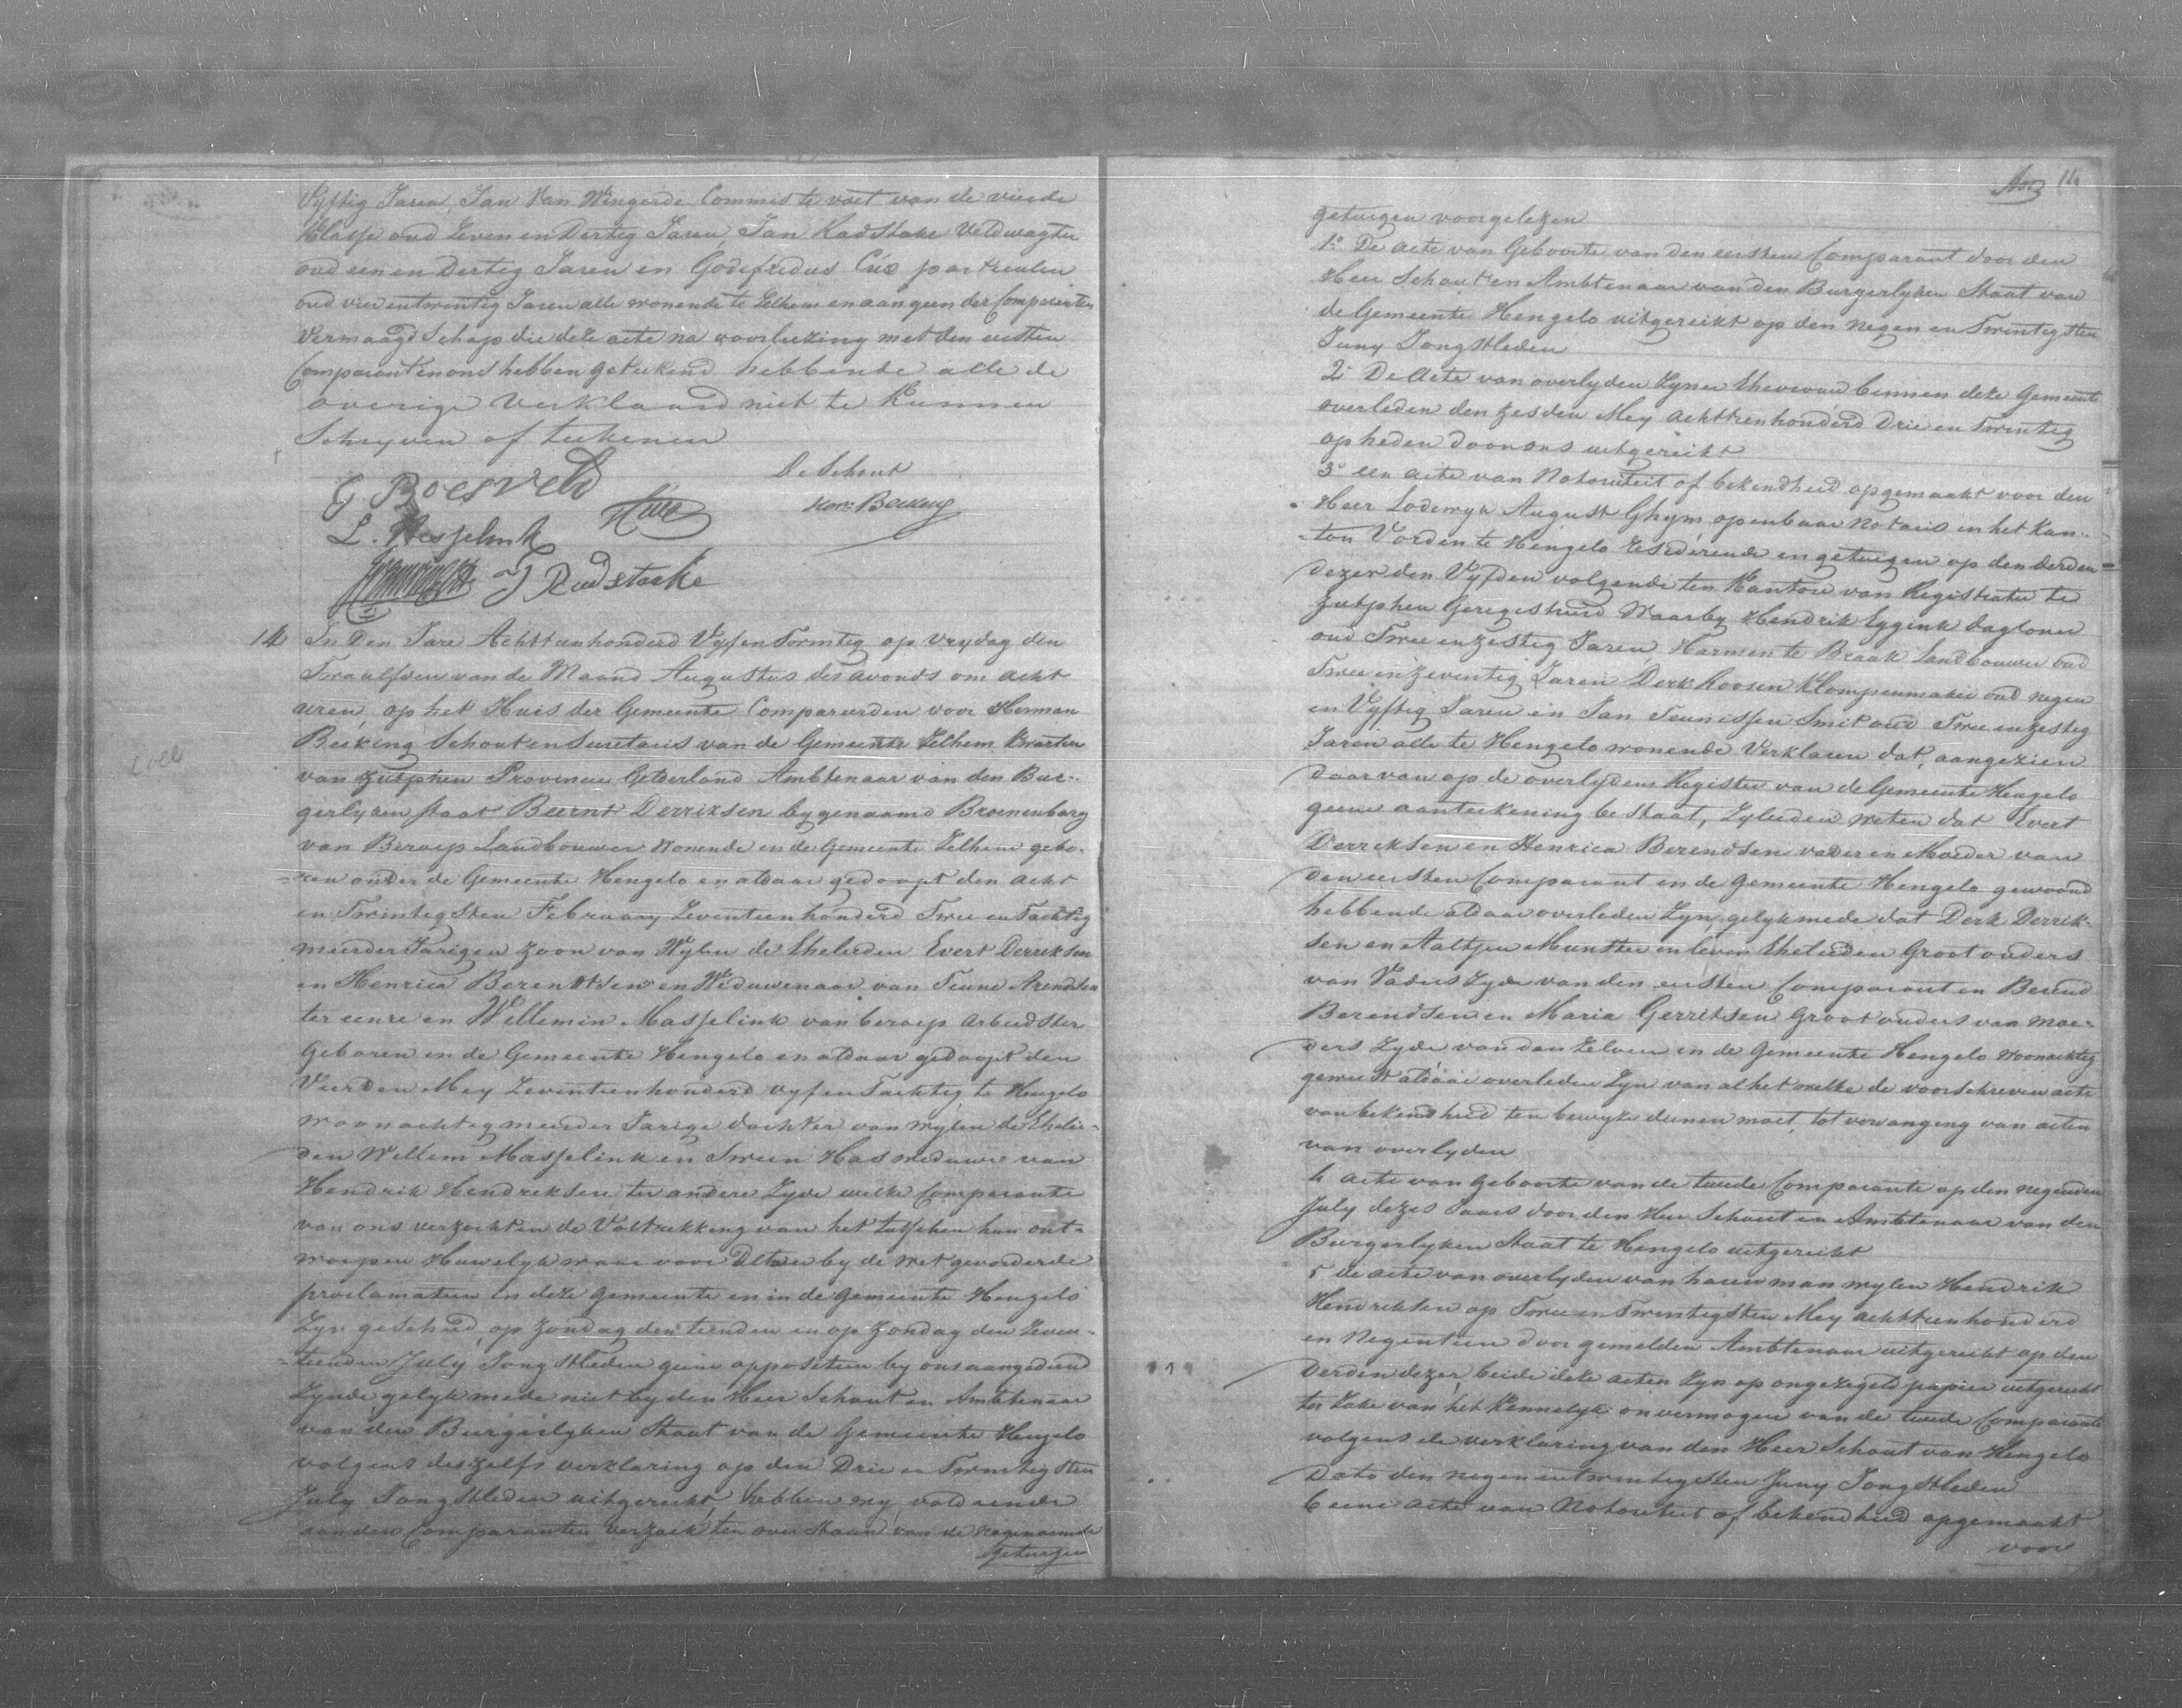 Vyftig Jaren, Jan Van Wingerde Commis te voet van de vierde
Klasse oud Zeven en Dertig Jaren, Jan Radstake Veldwagter
oud een en Dertig Jaren en Godefridus Cuo particulier
oud vier entwintig Jaren alle wonende te Zelhem en aan geen der Comparanten
Vermaagdschap die deze acte na voorleezing met den eersten
Comparant en ons hebben geteekend hebbende alle de
overige verklaard niet te kunnen
Schryven of teekenen
De Schout
G Boesveld
Herm: Beeking
L. Wesselink
J Radstaake
14 In Den Jare Achttienhonderd Vyfen Twintig op Vrydag den
Twaalfden van de Maand Augustus des avonds om acht
uren, op het Huis der Gemeente Compareerden voor Herman
Beeking Schout en Secretaris van de Gemeente Zelhem kwartier
van Zutphen Provincie Gelderland Ambtenaar van den Bur-
gerlyken staat Beernt Derriksen bygenaamd Broenenbarg
van Beroep Landbouwer Wonende in de Gemeente Zelhem gebo-
-ren onder de Gemeente Hengelo en aldaar gedoopt den acht
en Twintigsten February Zeventienhonderd Twee en Tachtig
meerder Jarigen zoon van Wylen de Ehelieden Evert Derriksen
en Henrica Berendsen en Weduwenaar van Teune Arendsen
ter eenre en Willemin Masselink van beroep Arbeidster
Geboren in de Gemeente Hengelo en aldaar gedoopt den
Vierden Mey Zeventienhonderd vyf en Tachtig te Hengelo
woonachtig meerder Jarige dochter van wylen de Ehelie-
den Willem Masselink en Sween Has weduwe van
Hendrik Hendriksen ter andere Zyde welke Comparante
van ons verzochten de Voltrekking van het tusschen hun ont-
worpen Huwelyk waar voor de twee by de wet gevorderde
proclamatien in deze gemeente en in de gemeente Hengelo
Zyn geschied, op Zondag den tienden en op Zondag den Zeven-
-tienden July Jongstleden geene oppositien by ons aangediend
Zynde, gelyk mede niet by den Heer Schout en Ambtenaar
van den Burgerlyken Staat van de Gemeente Hengelo
volgens deszelfs verklaring op den Drie en Twintigsten
July Jongstleden uitgereikt, hebben wy, voldoende
aan der Comparanten verzoek, ten overstaan van de nagenoemde
getuigen
getuigen voorgelezen
1o De acte van Geboorte van den eersten Comparant door den
Heer Schout en Ambtenaar van den Burgerlyken Staat van
de Gemeente Hengelo uitgereikt op den negen en Twintigsten
Juny Jongstleden
2o De Acte van overlyden Zyner Ehevrouw binnen deze Gemeente
overleden den zesden Mey achttienhonderd Drie en Twintig
op heden door ons uitgereikt
3o een acte van Notoriteit of bekendheid opgemaakt voor den
Heer Lodewyk August Ghym openbaar Notaris in het Kan-
-ton Vorden te Hengelo Resideerende en getuigen op den derden
dezer den Vyfden volgende ten Kantore van Registratie te
Zutphen Geregistreerd Waarby Hendrik Eggink dagloner
oud Twee en zestig Jaren, Harmen te Braak Landbouwer oud
Twee en zeventig Jaren Derk Roosen Klompenmaker oud negen
en Vyftig Jaren en Jan Teunissen Smit oud Twee en zestig
Jaren alle te Hengelo wonende Verklaren dat, aangezien
daar van op de overlydens Register van de Gemeente Hengelo
geene aanteekening bestaat, Zylieden weten dat Evert
Derriksen en Henrica Berendsen vader en Moeder van
den eersten Comparant in de Gemeente Hengelo gewoond
hebbende aldaar overleden Zyn, gelyk mede dat Derk Derrik-
sen en Aaltjen Munster in leven Ehelieden Groot ouders
van Vaders Zyde van den eersten Comparant en Berend
Berendsen en Maria Gerritsen Groot ouders van moe-
ders Zyde van den Zelven in de Gemeente Hengelo woonachtig
geweest aldaar overleden Zyn van al het welke de voorschreven acte
van bekendheid ten bewyze dienen moet, tot vervanging van acten
van overlyden
4 acte van geboorte van de tweede Comparante op den negenden
July dezes Jaars door den Heer Schout en Ambtenaar van den
Burgerlyken Staat te Hengelo uitgereikt
5 de acte van overlyden van haren man wylen Hendrik
Hendriksen op Twee en Twintigsten Mey achttienhonderd
en negentien door gemelden Ambtenaar uitgereikt op den
derden dezer, beide deze acten zyn op ongezegeld papier uitgereikt
ter zake van het kennelyk onvermogen van de tweede Comparante
volgens de verklaring van den Heer Schout van Hengelo
dato den negen entwintigsten Juny Jongstleden
6 eene acte van Notoriteit of bekendheid opgemaakt
voor